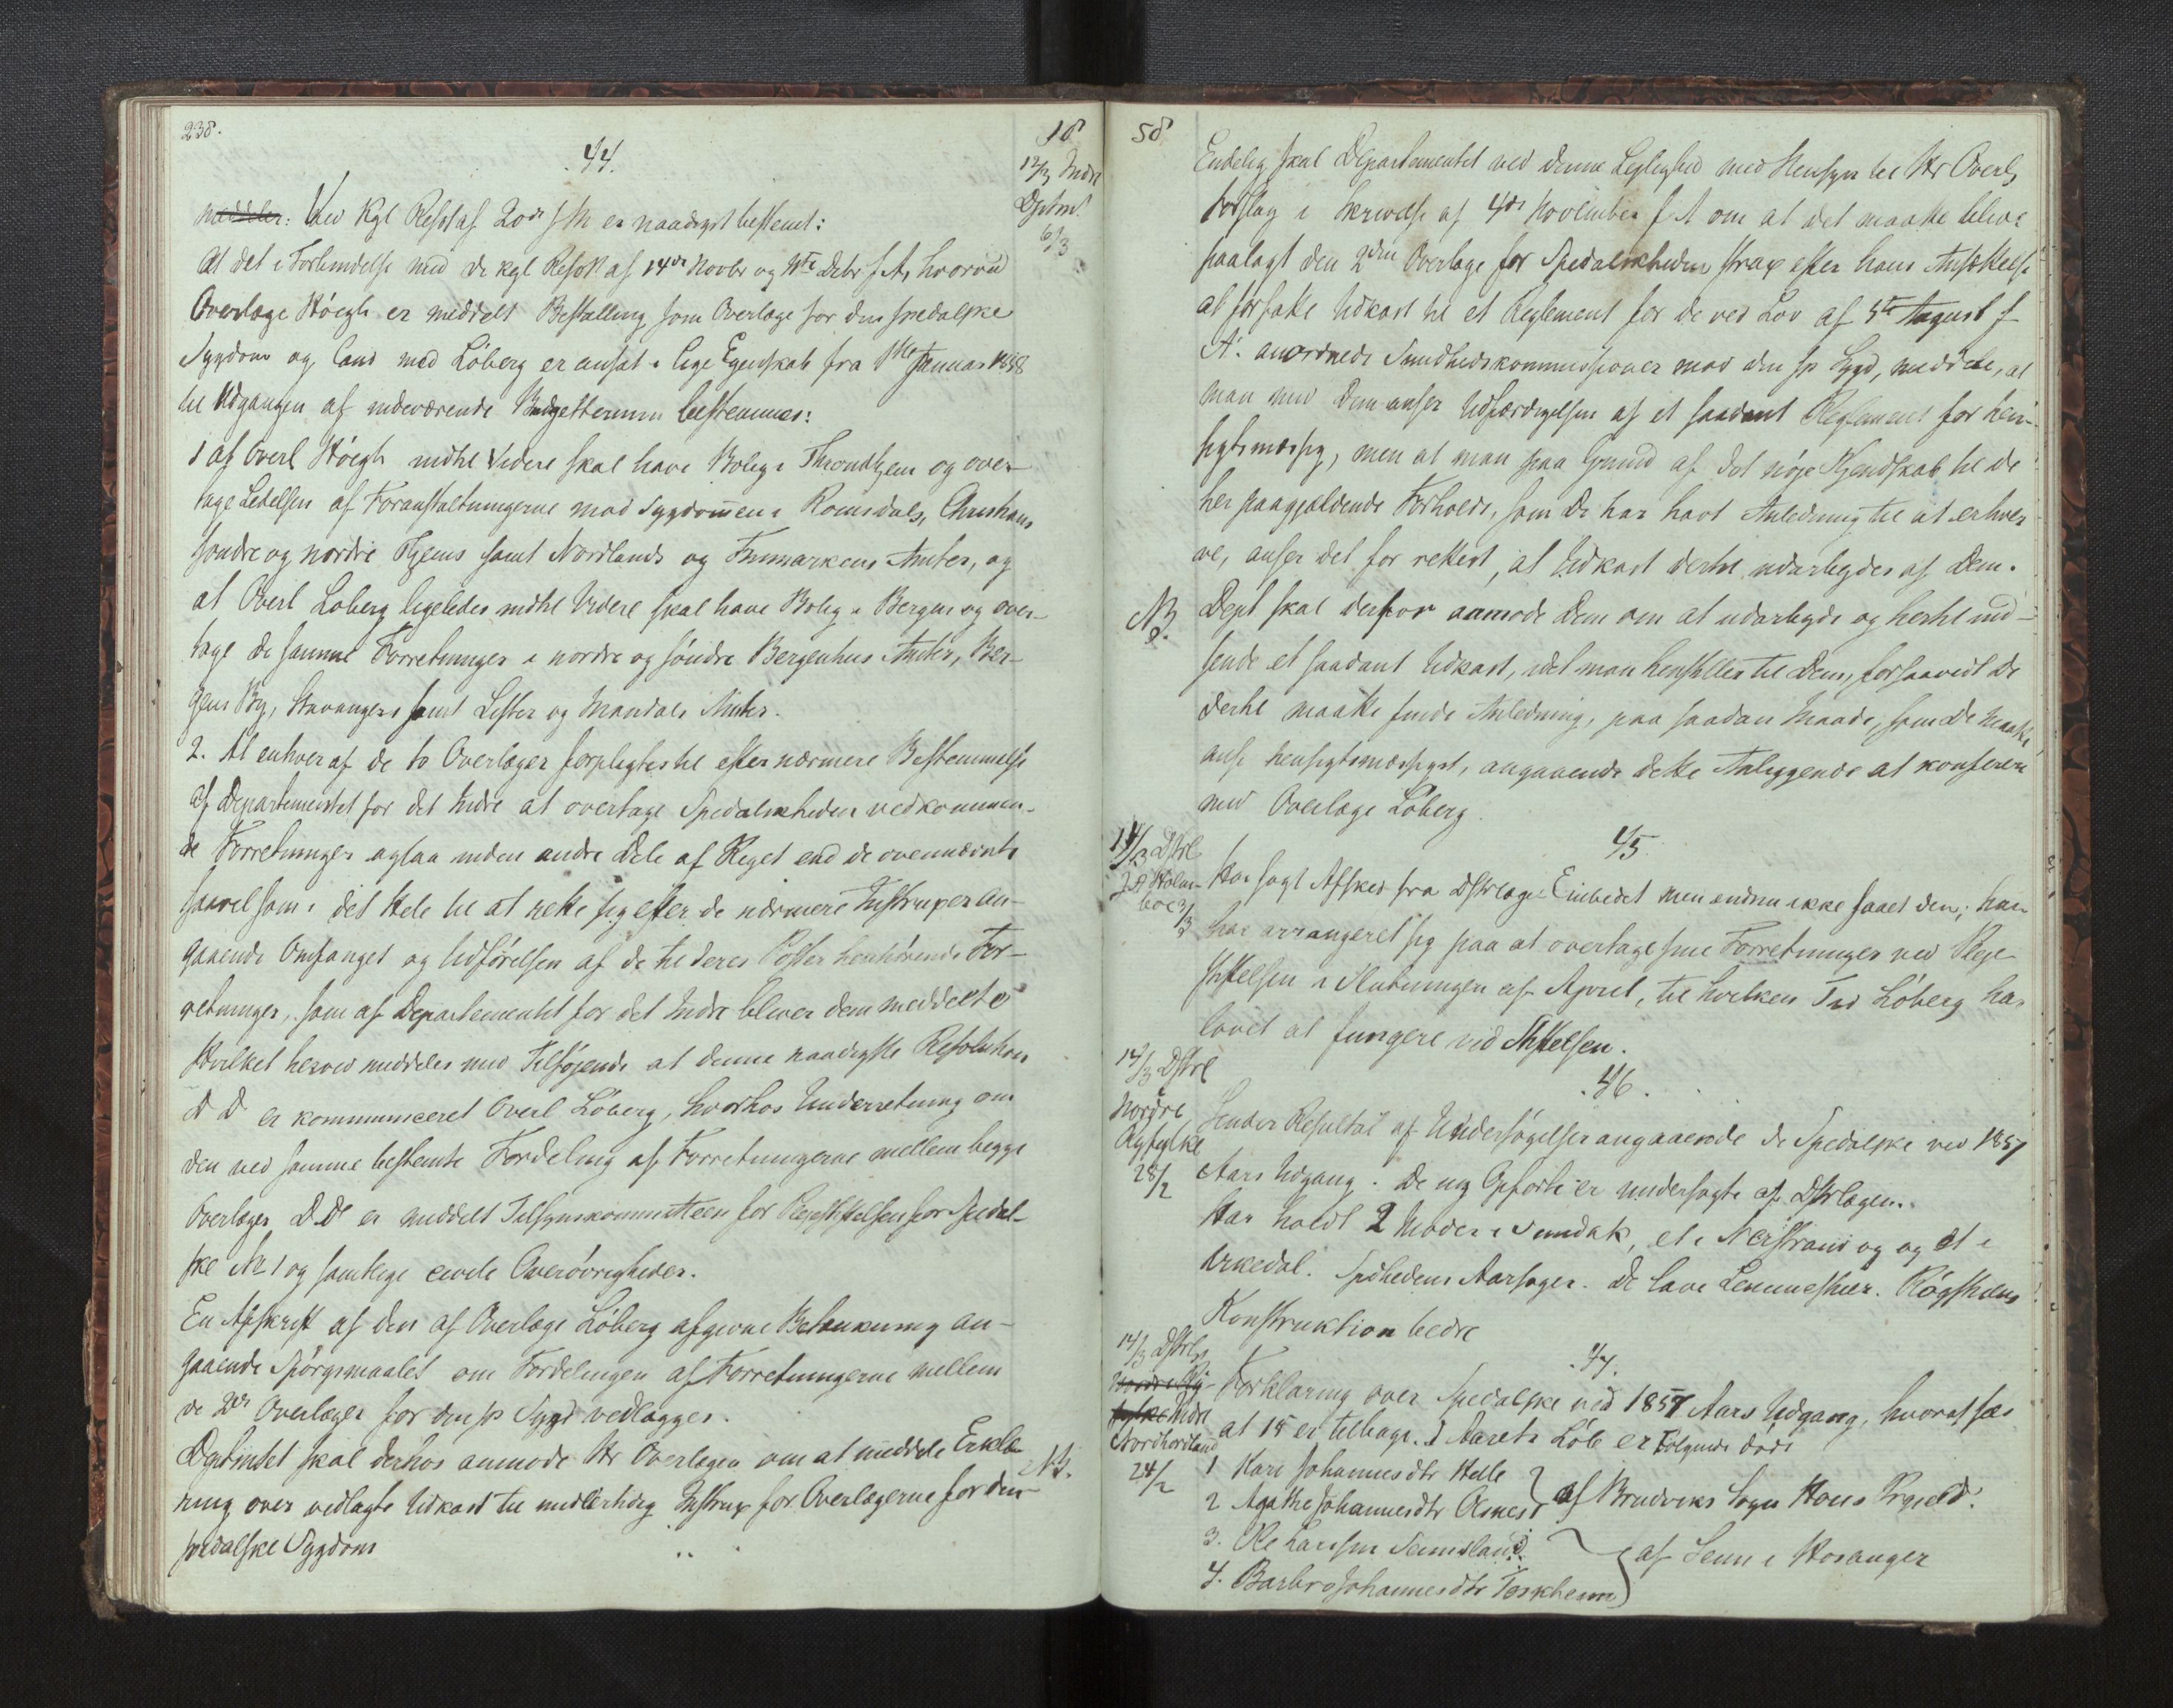 238.
18
44.
12/3 Indre
Dptmt.
6/3
meddeler: Ved Kgl Resol af 20de f M er naadigst bestemt:
At det i Forbindelse med de kgl Resoll af 14de Novbr og Debr f. A, hvorved
Overlæge Höegh er meddelt Bestalling som Overlæge for den spedalske
Sygdom og Cand med Löberg er ansat i lige Egenskab fra 1ste Januar 1858
til Udgangen af indeværende Budgettermin bestemmes:
1 at Overl Höegh indtil Videre skal have Bolig i Throndhjem og over-
tage Ledelsen af Foranstaltningerne mod Sygdommen i Romsdals, Christians
söndre og nordre Thjems samt Nordlands og Finmarkens Amter, og
at Overl Löberg ligeledes indtil Videre skal have Bolig i Bergen og over-
tage de samme Forretninger i nordre og söndre Bergenhus Amter, Ber-
gens By, Stavangers samt Lister og Mandals Amter.
2. At enhver af de to Overlæger forpligtes til efter nærmere Bestemmelse
af Departementet for det Indre at overtage Spedalskheden vedkommen-
de Forretninger ogsaa inden andre Dele af Riget end de ovennævnte
saavelsom i det Hele til at rette sig efter de nærmere Instruxer an-
gaaende Omfanget og Udförelsen af de til deres Poster henhörende For-
retninger, som af Departementet for det Indre bliver dem meddelte
Hvilket herved meddeles med Tilföjende at denne naadigste Resolution
D D er kommuniceret Overl Löberg, hvorhos Underretning om
den ved samme bestemte Fordeling af Forretningerne mellem begge
Overlæger D.D. er meddelt Tilsynskommitteen for Plejestiftelsen for Spedal-
ske No 1 og samtlige civile Överövrigheder.
En Afskrift af den af Overlæge Löberg afgivne Betænkning an-
gaaende Spörgsmaalet om Fordelingen af Forretningerne mellem
de 2de Overlæger for den sp Sygd vedlægges.
Dptmtet skal derhos anmode Hr Overlægen om at meddele Erklæ- NB.
ring over vedlagte Udkast til midlertidig Instrux for Overlægerne for den
spedalske Sygdom
58
Endelig skal Departementet ved denne Lejlighed med Hensyn til Hr Overl,
Forslag i Skrivelse af 4de November f A om at det maatte blive
paalagt den 2den Overlæge for Spedalskheden strax efter hans Ansættelse
at forfatte Udkast til et Reglement for de ved Lov af August f
A. anordnede Sundhedskommissioner mod den sp Sygd, meddele, at
man med Dem anser Udfærdigelsen af et saadant Reglement for hen-
sigtsmæssig, men at man paa Grund af det nöje Kjendskab til de
her paagjældende Forholde, som De har havt Anledning til at erhver
ve, anser det for rettest, at Udkast dertil udarbejdes af Dem.
NB
Dept skal derfor anmode Dem om at udarbejde og hertil ind-
sende et saadant Udkast, idet man henstiller til Dem, forsaavidt De
dertil maatte finde Anledning, paa saadan Maade, som De maatte
anse hensigtsmæssigst, angaaende dette Anliggende at konferere
med Overlæge Löberg.
45.
14/3 Dstrl
J A Holm-
boe 3/3
Har sögt Afsked fra Dstrlæge Embedet men endnu ikke faaet den; han
har arrangeret sig paa at overtage sine Forretninger ved Pleje-
stiftelsen i Slutningen af April, til hvilken Tid Löberg har
lovet at fungere ved Stiftelsen.
46.
14/3 Dstrl
i
Nordre
Ryfylke
28/2
Sender Resultat af Undersögelser angaaende de Spedalske ved 1857
Aars Udgang. De ny Opförte er undersögte af Dstrlægen.
Har holdt 2 Möder i et i og og et i
Spdhedens Aarsager. De lave Lemmestuer. Rögstuens
Konstruktion bedre
47.
14/3 Dstrlg
Nordre Ry-
fylke Indre
Nordhordland
24/2
Forklaring over Spedalske ved 1857 Aars Udgang, hvoraf sees
at 15 er tilbage. I Aarets Löb er Fölgende döde
1 Kari Johannesdtr Helle
2 Agathe Johannesdtr } af Bruviks Sogn Hous Prgjeld.
3. Ole Larssen
4. Barbro Johannesdtr } af i Hosanger